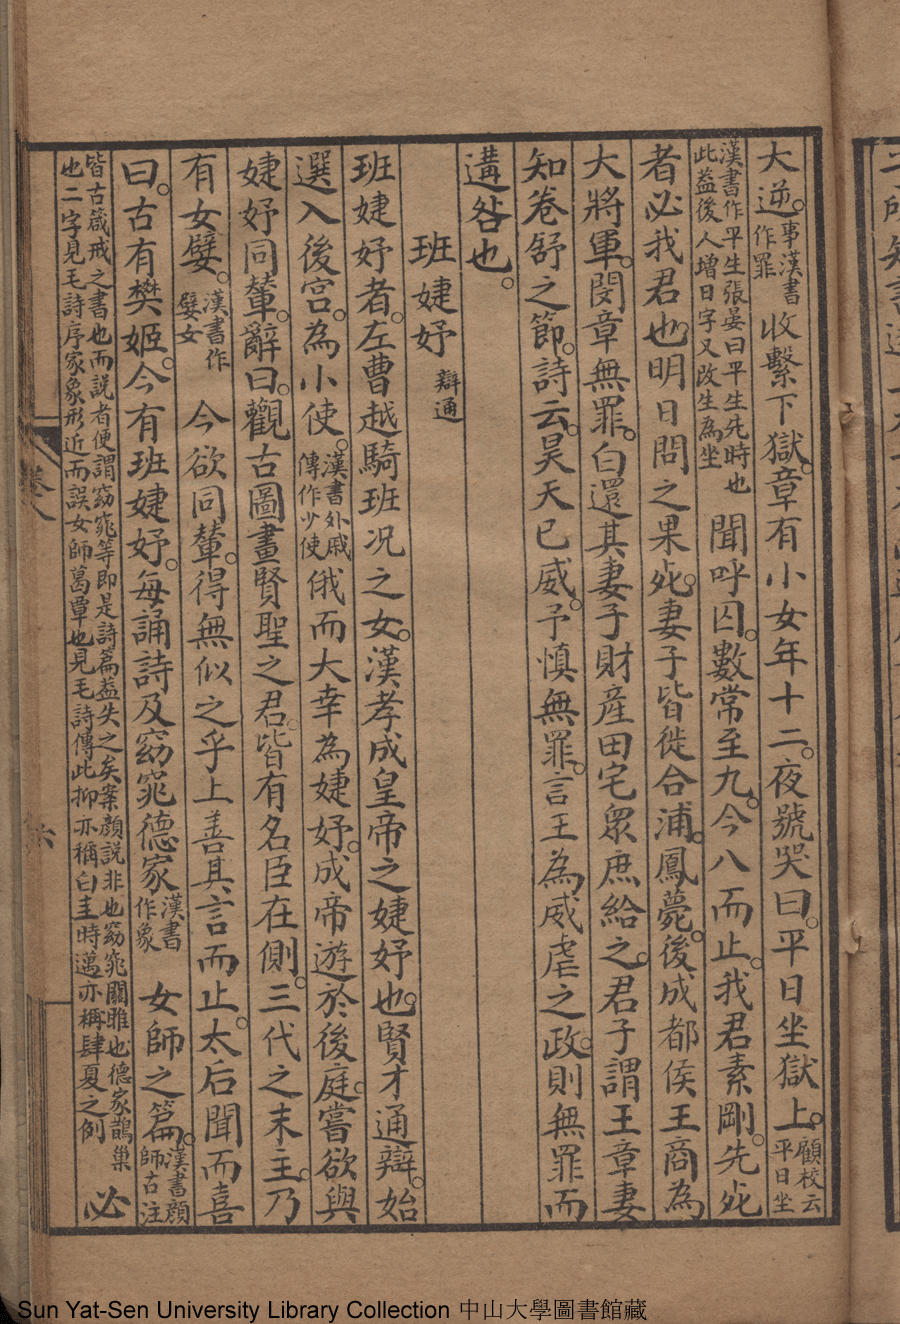 大逆。事漢書作罪收繫下獄。章有小女年十二。夜號哭曰。平日坐獄上。顧校云平日坐
漢書作平生張晏曰平生先時也此益後人增日字又改生為坐聞呼囚。數常至九。今八而止。我君素剛。先死
者必我君也明日問之果死。妻子皆徙合浦。鳳薨。後成都侯王商為
大將軍。閔章無罪。白還其妻子財產田宅眾庶給之。君子謂王章妻
知卷舒之節。詩云。昊天已威。予慎無罪。言王為威虐之政。則無罪而
遘咎也。
班婕妤辯通
班婕妤者。左曹越騎班況之女。漢孝成皇帝之婕妤也。賢才通辯。始
選入後宮。為小使。漢書外戚傳作少使俄而大幸為婕妤。成帝遊於後庭。嘗欲與
婕妤同輦。辭曰。觀古圖畫賢聖之君。皆有名臣在側。三代之末主。乃
有女嬖。漢書作嬖女今欲同輦。得無似之乎上善其言而止。太后聞而喜
曰。古有樊姬。今有班婕妤。每誦詩及窈窕德家漢書作象女師之篇。漢書顏師古注
皆古箴戒之書也而說者便謂窈窕等即是詩篇益失之矣案顏說非也窈窕關雎也德家鵲巢也二字見毛詩序家象形近而誤女師葛覃也見毛詩傳此抑亦稱白圭時邁亦稱肆夏之例必
卷八
六
Sun Yat-Sen University Library Collection 中山大學圖書館藏